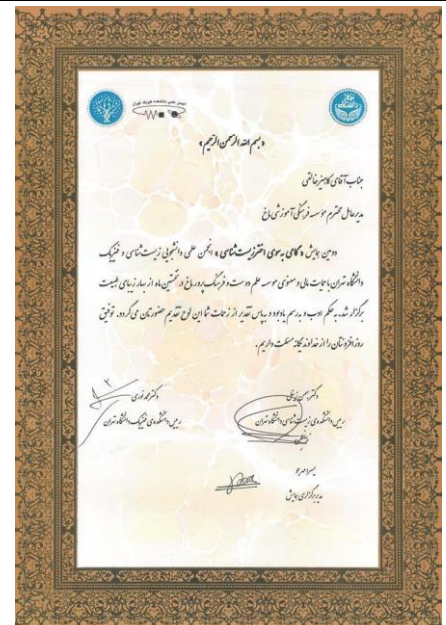 انجمن علمی دانشکده فیزیک تهران
«بسم الله الرحمن الرحیم»
جناب آقای کامبیز خالقی
مدیرعامل محترم موسسه فرهنگی آموزشی ماغ
دومین همایش «گامی به سوی اخترزیست‌شناسی» انجمن علمی دانشجویی زیست‌شناسی و فیزیک
دانشگاه تهران با حمایت مالی و معنوی موسسه علم دوست و فرهنگ پرور ماغ در نخستین ماه از بهار زیبای طبیعت
برگزار شد. به حکم ادب و به رسم یادبود و به پاس تقدیر از زحمات شما این لوح تقدیم حضورتان می گردد. توفیق
روزافزونتان را از خداوند یگانه مسئلت داریم.
دکتر محمد نوری
دکتر بهمن
رییس دانشکده‌ی فیزیک دانشگاه تهران
رییس دانشکده‌ی زیست‌شناسی دانشگاه تهران
مدیر برگزاری همایش